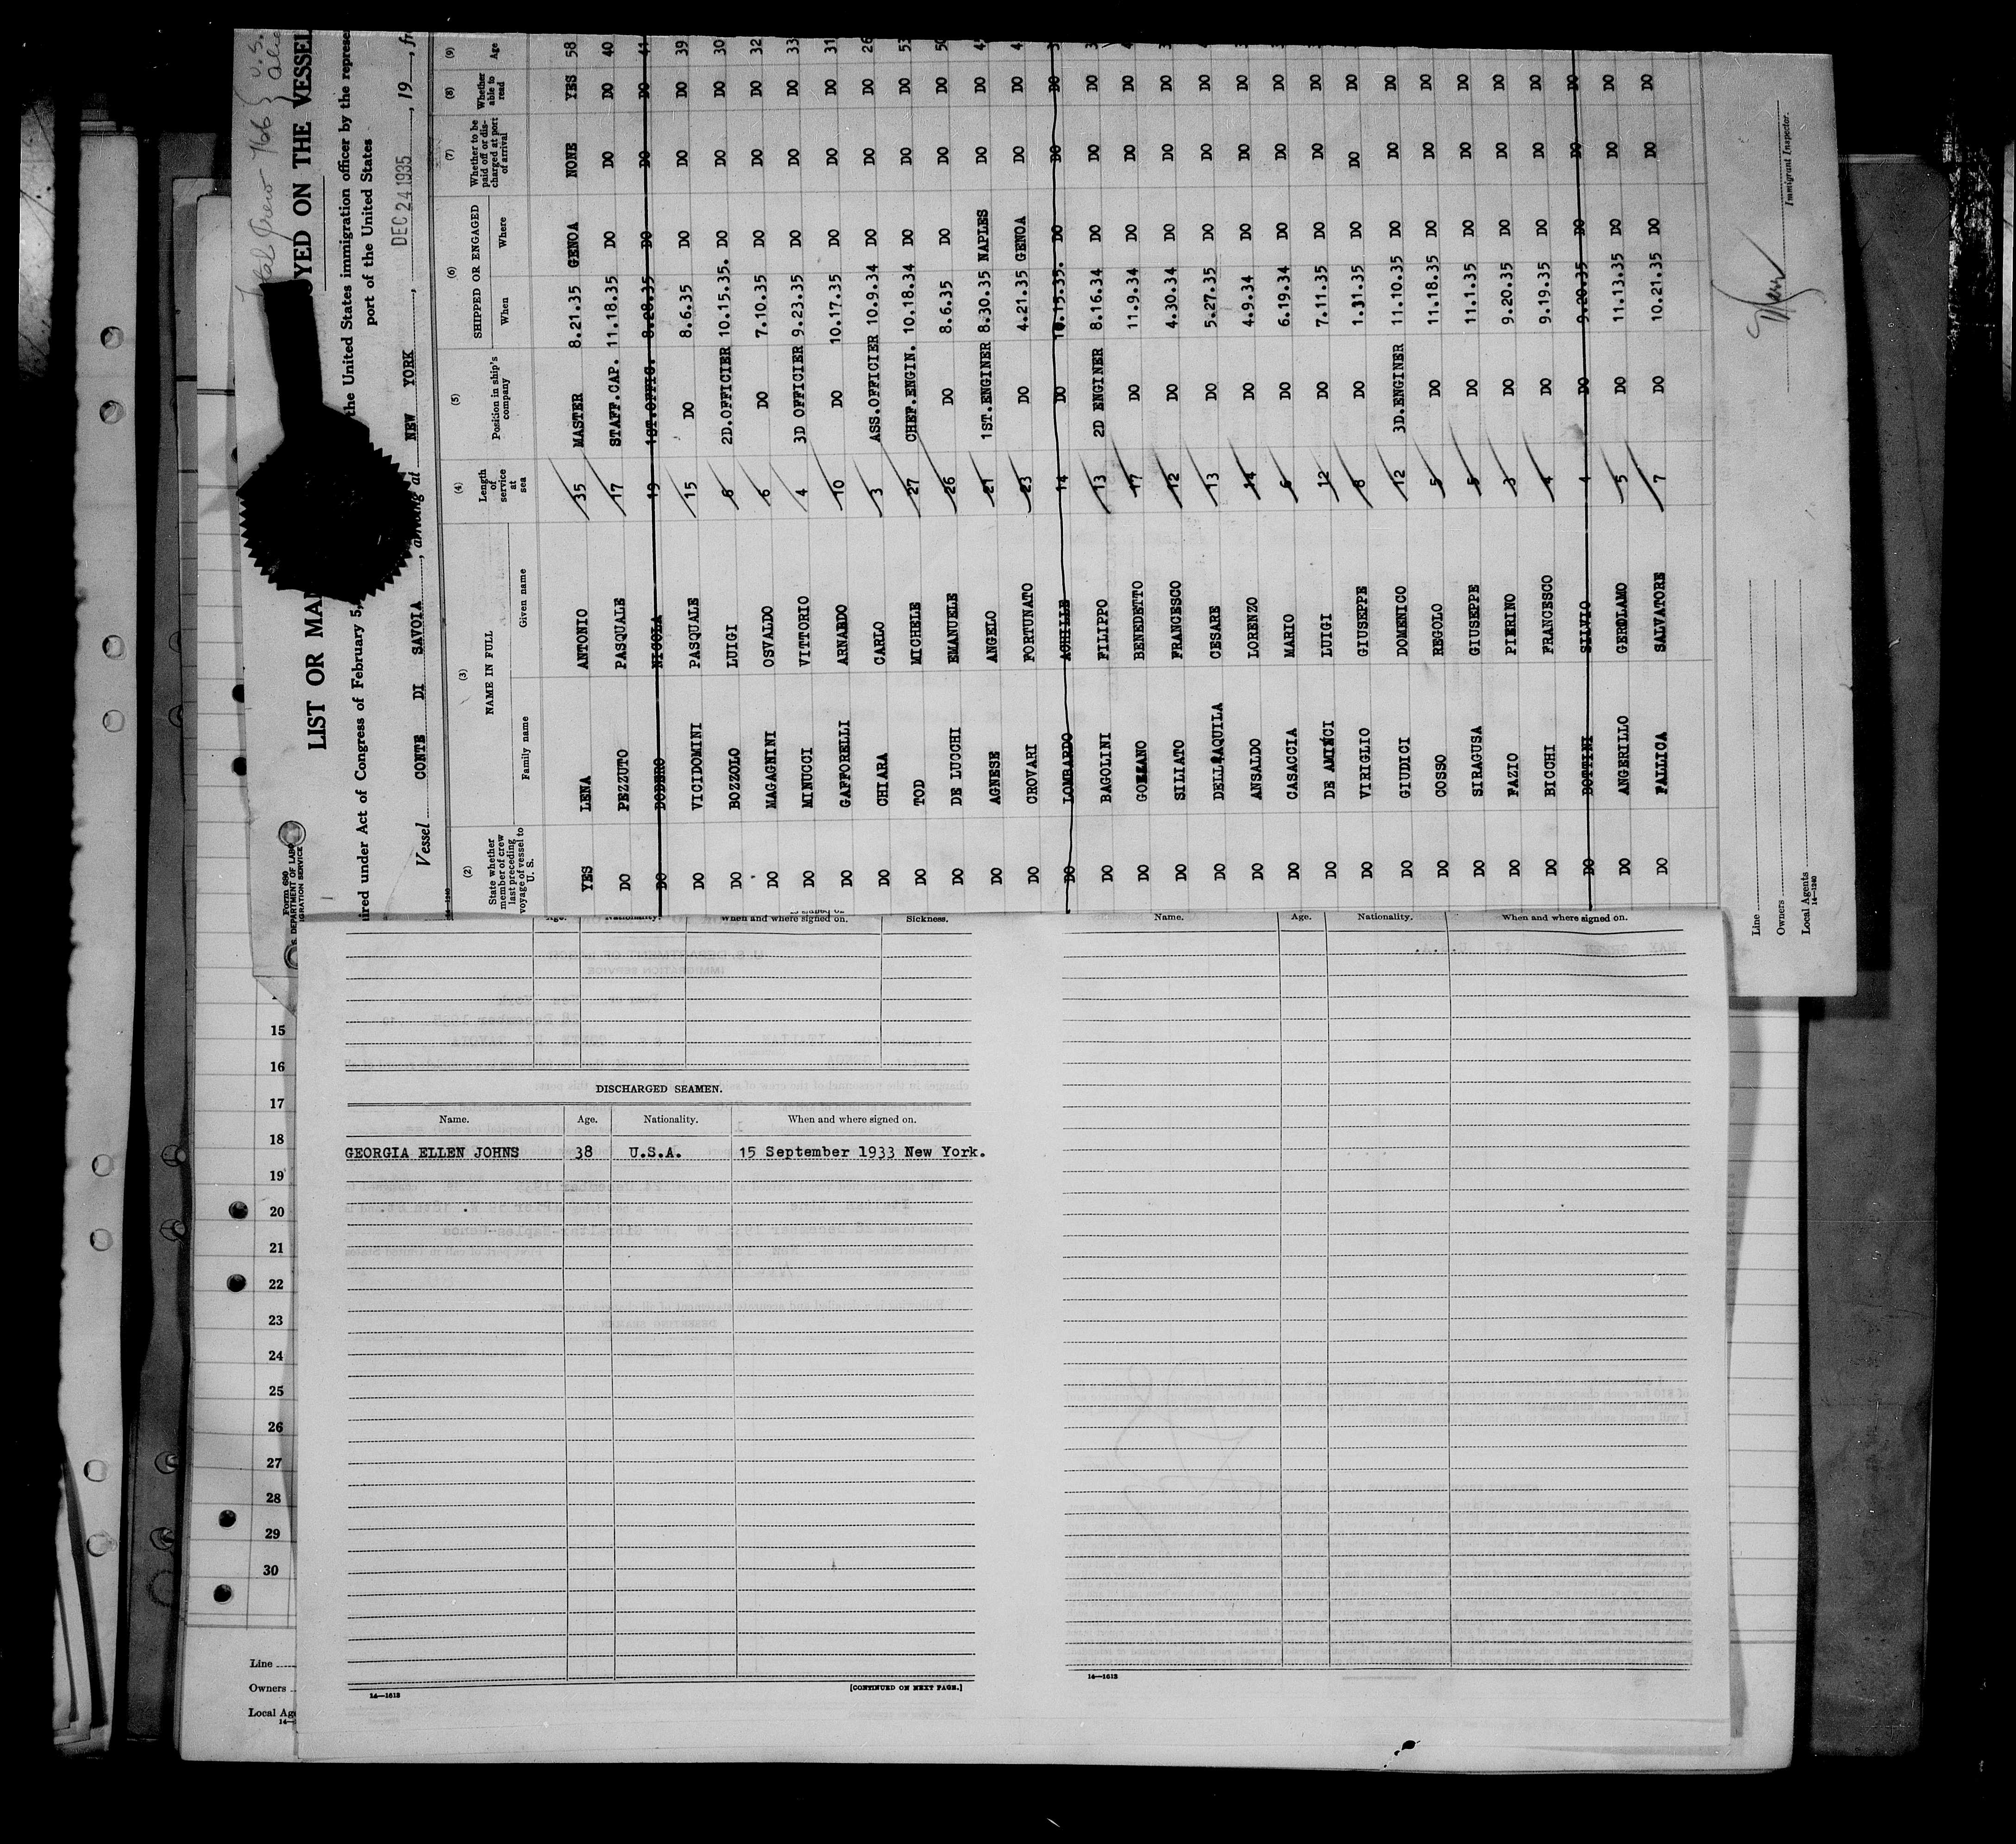 Total Crew 766 { U. S.
Form 680
U. S. DEPARTMENT OF LABOR
IMMIGRATION SERVICE
LIST OR MAN
OYED ON THE VESSEL
ired under Act of Congress of February 5,
the United States immigration officer by the represe
port of the United States
Vessel CONTE DI SAVOIA , arriving at NEW YORK , DEC 24 1935 , 19 , fr
(2) (3) (4) (5) (6) (7) (8) (9)
State whether member of crew last preceding voyage of vessel to U. S.
NAME IN FULL
Family name Given name
Length of service at sea
Position in ship's company
SHIPPED OR ENGAGED
When Where
Whether to be paid off or discharged at port of arrival
Whether able to read
Age
YES LENA ANTONIO 35 MASTER 8.21.35 GENOA NONE YES 58
DO PEZZUTO PASQUALE 17 STAFF.CAP. 11.18.35 DO DO DO 40
DO DODERO NICOLA 19 1ST.OFFIC. 8.28.35 DO DO DO 41
DO VICIDOMINI PASQUALE 15 DO 8.6.35 DO DO DO 39
DO BOZZOLO LUIGI 8 2D.OFFICIER 10.15.35. DO DO DO 30
DO MAGAGNINI OSVALDO 6 DO 7.10.35 DO DO DO 32
DO MINUCCI VITTORIO 4 3D OFFICIER 9.23.35 DO DO DO 33
DO GAFFORELLI ARNARDO 10 DO 10.17.35 DO DO DO 31
DO CHIARA CARLO 3 ASS.OFFICIER 10.9.34 DO DO DO 26
DO TOD MICHELE 27 CHEF.ENGIN. 10.18.34 DO DO DO 53
DO DE LUCCHI EMANUELE 26 DO 8.6.35 DO DO DO 50
DO AGNESE ANGELO 21 1ST.ENGINER 8.30.35 NAPLES DO DO 4
DO CROVARI FORTUNATO 23 DO 4.21.35 GENOA DO DO 4
DO LOMBARDO ACHILLE 14 DO 10.15.35. DO DO DO 3
DO BAGOLINI FILIPPO 13 2D ENGINER 8.16.34 DO DO DO 3
DO GOZZANO BENEDETTO 17 DO 11.9.34 DO DO DO 4
DO SILIATO FRANCESCO 12 DO 4.30.34 DO DO DO
DO DELL'AQUILA CESARE 13 DO 5.27.35 DO DO DO
DO ANSALDO LORENZO 14 DO 4.9.34 DO DO DO
DO CASACCIA MARIO 6 DO 6.19.34 DO DO DO
DO DE AMICI LUIGI 12 DO 7.11.35 DO DO DO
DO VIRIGLIO GIUSEPPE 8 DO 1.31.35 DO DO DO
DO GIUDICI DOMENICO 12 3D.ENGINER 11.10.35 DO DO DO
DO COSSO REGOLO 5 DO 11.18.35 DO DO DO
DO SIRAGUSA GIUSEPPE 5 DO 11.1.35 DO DO DO
DO FAZIO PIERINO 3 DO 9.20.35 DO DO DO
DO BICCHI FRANCESCO 4 DO 9.19.35 DO DO DO
DO BOTTINI SILVIO 4 DO 9.20.35 DO DO DO
DO ANGERILLO GEROLAMO 5 DO 11.13.35 DO DO DO
DO FALLICA SALVATORE 7 DO 10.21.35 DO DO DO
Line
Owners
Local Agents
14—1240
Immigrant Inspector.
Age. Nationality. When and where signed on. Sickness.
Name. Age. Nationality. When and where signed on.
DISCHARGED SEAMEN.
Name. Age. Nationality. When and where signed on.
GEORGIA ELLEN JOHNS 38 U.S.A. 15 September 1933 New York.
14—1613
[CONTINUED ON NEXT PAGE.]
14—1613
15
16
17
18
19
20
21
22
23
24
25
26
27
28
29
30
Line
Owners
Local Age